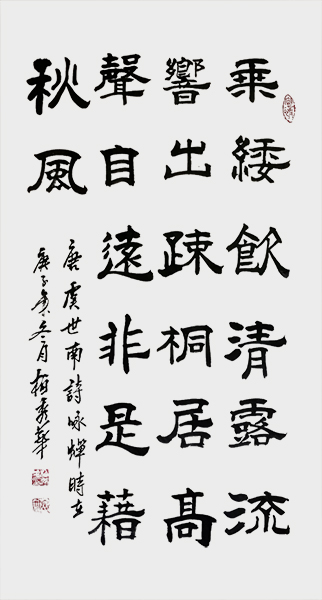 乘緌飲清露流
響出疎桐居高
聲自遠非是藉
秋風
唐虞世南詩咏蟬時在
庚子年冬月